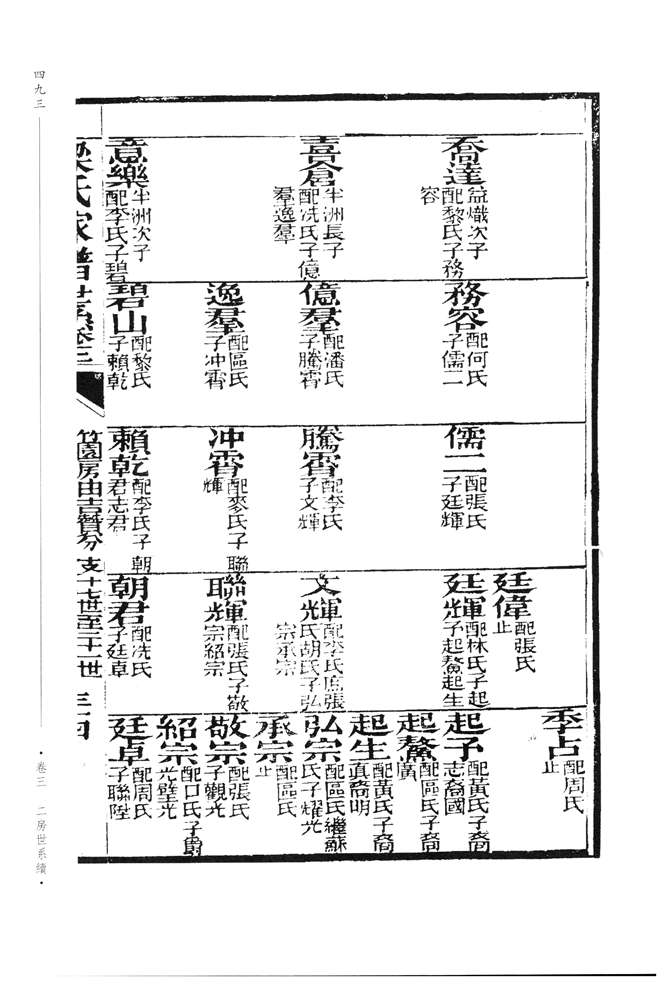 四九三
喬達 益熾次子
配黎氏子務
容
喜倉 半洲長子
配冼氏子億
羣逸羣
意樂 半洲次子
配李氏子碧
務容 配何氏
子儒二
億羣 配潘氏
子騰霄
逸羣 配區氏
子冲霄
碧山 配黎氏
子賴乾
儒二 配張氏
子廷輝
騰霄 配李氏
子文輝
冲霄 配麥氏子聯
輝
賴乾 配李氏子朝
君志君
廷偉 配張氏
止
廷輝 配林氏子起
子起鰲起生
文輝 配李氏庶張
氏胡氏子弘
宗承宗
聯輝 配張氏子敬
宗紹宗
朝君 配冼氏
子廷卓
季占 配周氏
止
起予 配黃氏子裔
志裔國
起鰲 配區氏子裔
廣
起生 配黃氏子裔
真裔明
弘宗 配區氏繼蘇
氏子耀光
承宗 配區氏
止
敬宗 配張氏
子觀光
紹宗 配口氏子爵
光壁光
廷卓 配周氏
子聯陞
梁氏家譜世系卷三
竹園房由吉贊分支十七世至二十一世
三十四
卷三 二房世系續